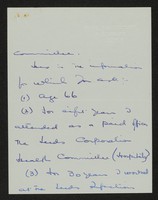 Committee.
Here is the information
for which you ask:
(1) Age 66
(2) For eight years I
attended as a paid officer
the Leeds Corporation
Health Committee (Hospitals)
(3) For 30 years I worked
at the Leeds